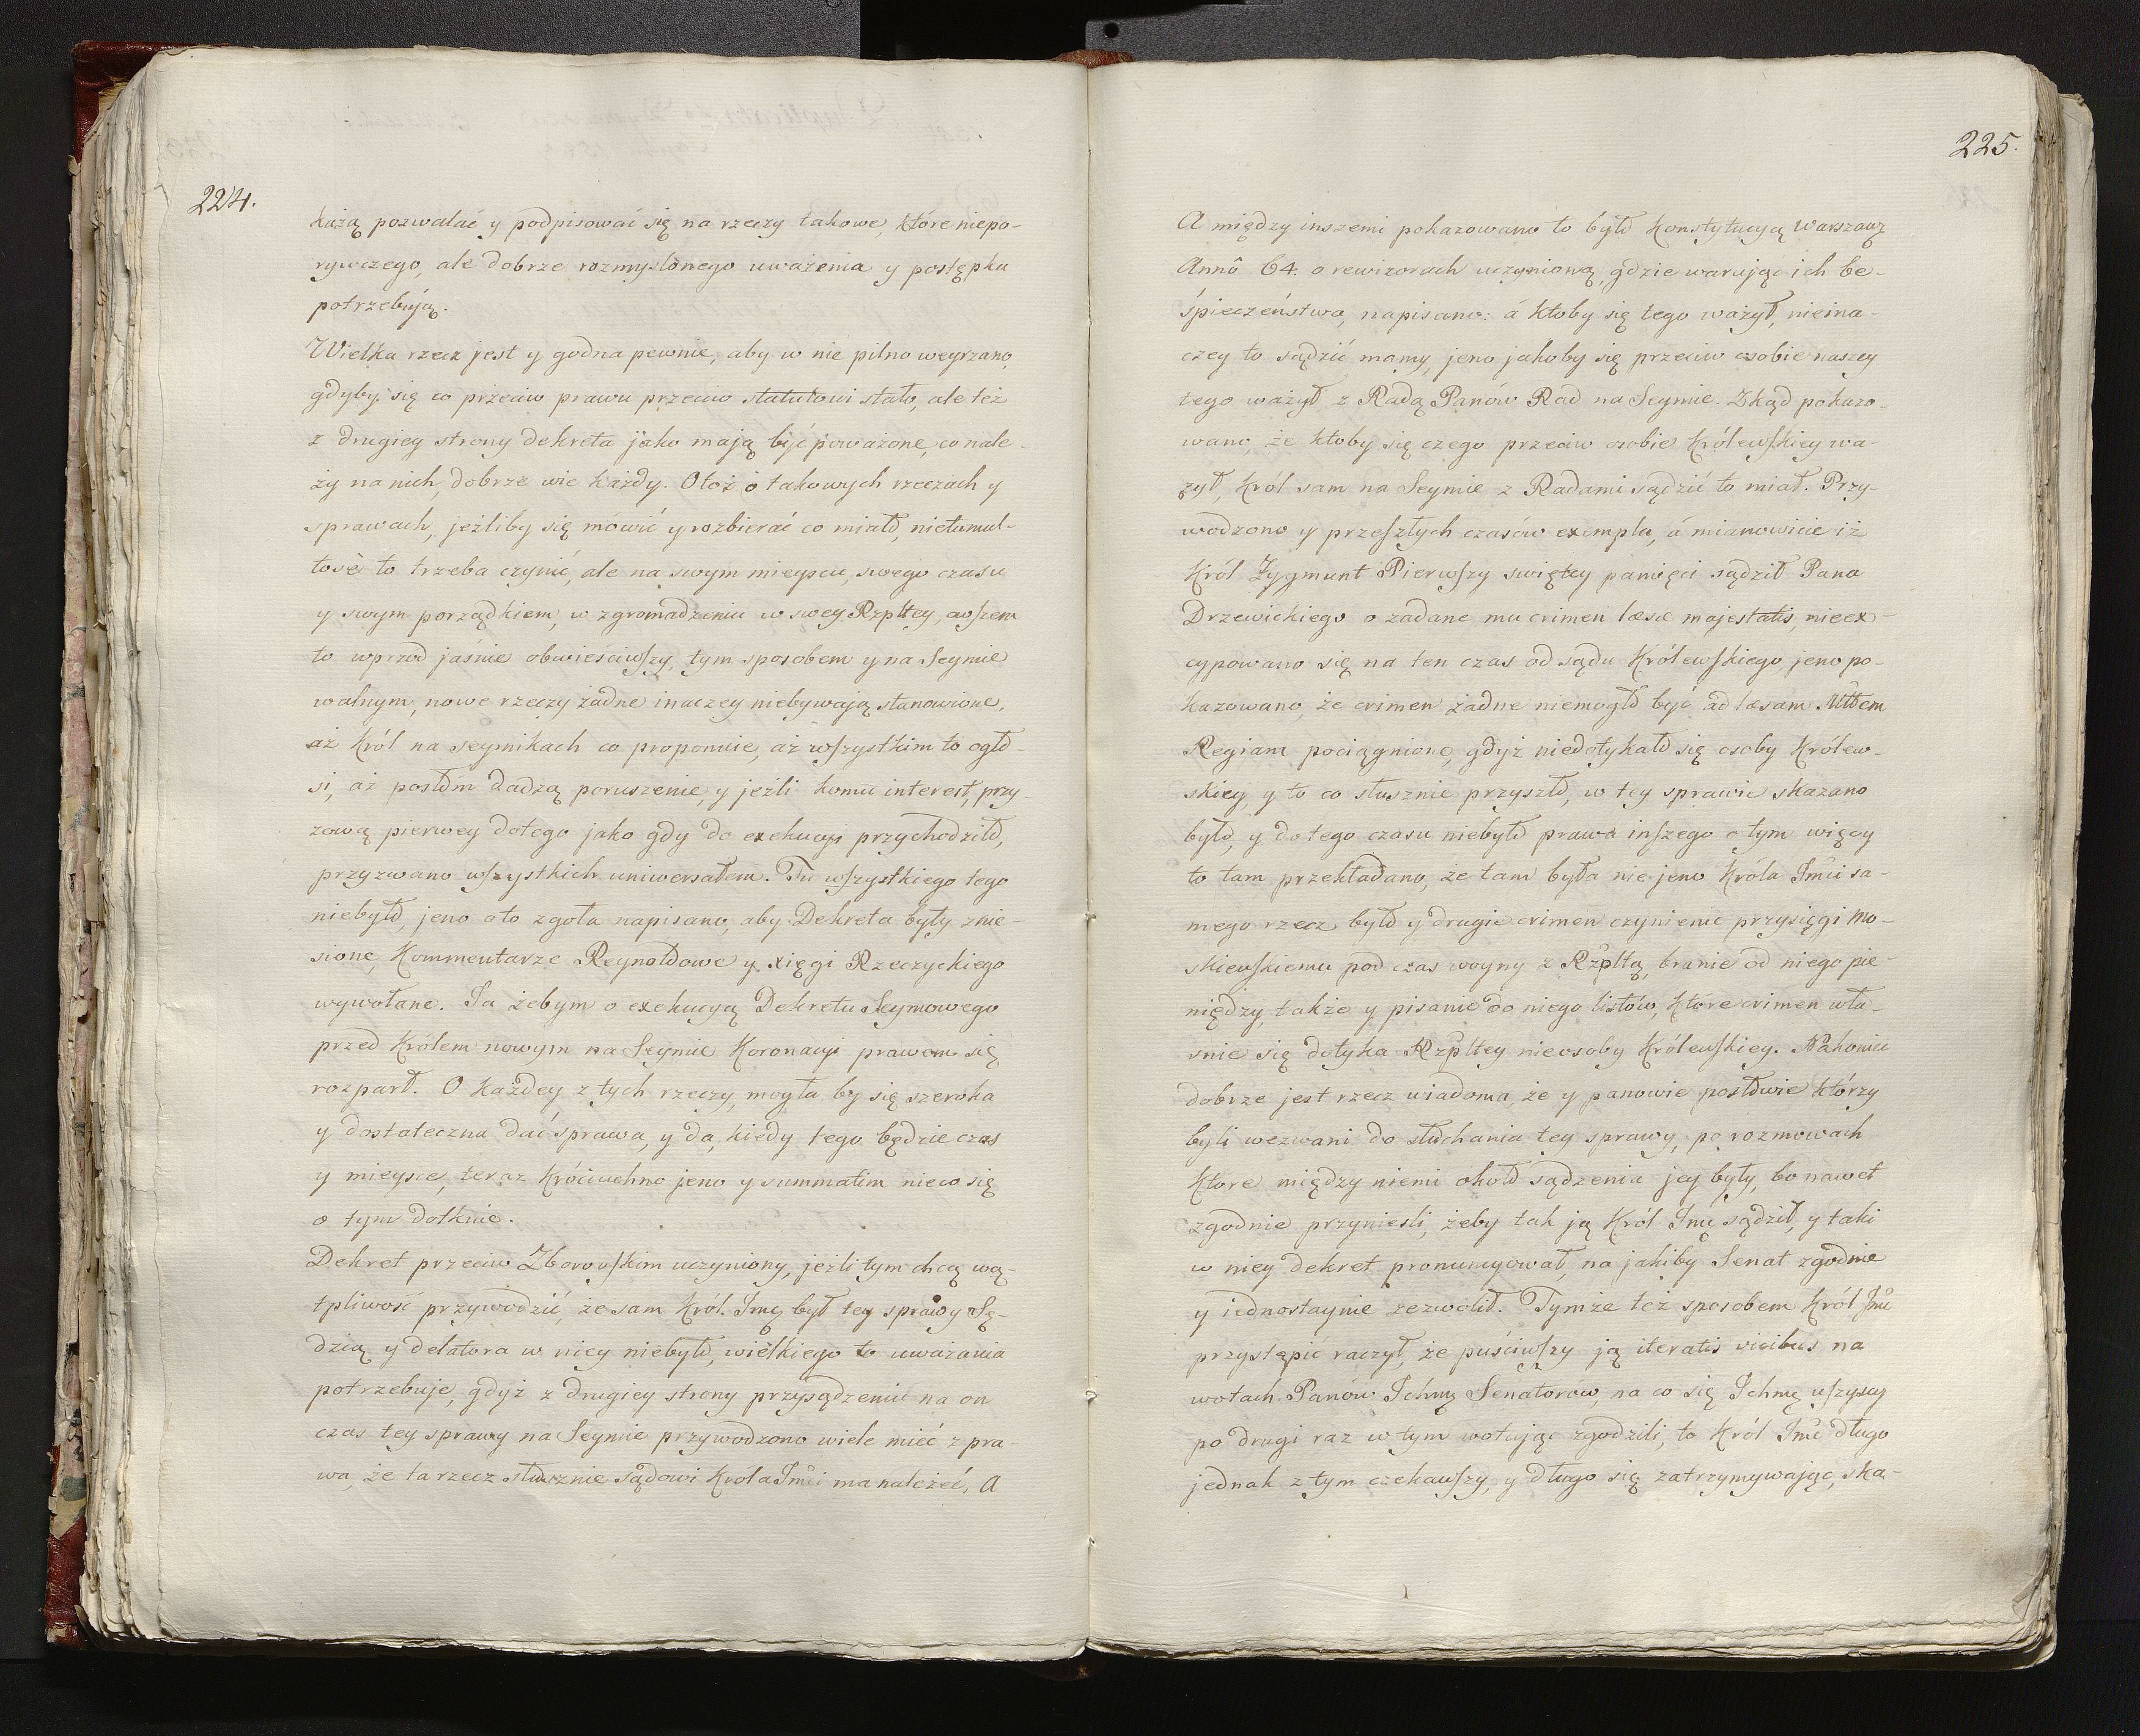 224.
każą pozwalać y podpisować się na rzeczy takowe, które niepo-
rywczego, ale dobrze rozmyślonego uważenia y postępku
potrzebują.
Wielka rzecz jest y godna pewnie, aby w nie pilno weyrzano,
gdyby się co przeciw prawu przeciw statutowi stało, ale też
z drugiey strony dekreta jako mają być poważone, co nale-
ży na nich, dobrze wie każdy. Otoż o takowych rzeczach y
sprawach, jeżliby się mówić y rozbierać co miało, nietumul-
tosè to trzeba czynić, ale na swym mieyscu, swego czasu
y swym porządkiem, w zgromadzeniu w swey Rzpltey, owszem
to wprzod jasnie obwieściwszy, tym sposobem y na Seymie
walnym, nowe rzeczy żadne inaczey niebywają stanowione,
aż Król na seymikach co proponuie, aż wszystkim to ogło-
si, aż posłom dadzą poruszenie, y jeżli komu interest, przy-
zową pierwey dotego jako gdy do exekucyi przychodziło,
przyzwano wszystkich uniwersałem. Tu wszystkiego tego
niebyło, jeno oto zgoła napisano, aby Dekreta były znie-
sione, Kommentarze Reynoldowe y xięgi Rzeczyckiego
wywołane. Ja żebym o exekucyą Dekretu Seymowego
przed Królem nowym na Seymie Koronacyi prawem się
rozparł. O każdey z tych rzeczy, mogła by się szeroka
y dostateczna dać sprawa, y da, kiedy tego będzie czas
y mieysce, teraz króciuchno jeno y summatim nieco się
o tym dotknie.
Dekret przeciw Zborowskim uczyniony, jeżli tym chcą wą-
tpliwość przywodzić, że sam Król Jmę był tey sprawy Sę-
dzią y delatora w niey niebyło, wielkiego to uważania
potrzebuje, gdyż z drugiey strony przysądzeniu na on
czas tey sprawy na Seymie przywodzono wiele mieć z pra-
wa, że ta rzecz słusznie sądowi Króla Jmci ma należeć, A
225.
A między inszemi pokazowano to było Konstytucyą Warszaws
Annô 64. o rewizorach uczynioną, gdzie warując ich be-
śpieczeństwa, napisano: á ktoby się tego ważył, nieina-
czey to sądzić mamy, jeno jakoby się przeciw osobie naszey
tego ważył z Radą Panów Rad na Seymie. Zkąd pokazo-
wano, że ktoby się czego przeciw osobie Królewskiey wa-
żył, Król sam na Seymie z Radami sądzić to miał. Przy-
wodzono y przeszłych czasów exempla, á mianowicie iż
Król Zygmunt Pierwszy swiętey pamięci sądził Pana
Drzewickiego o zadane mu crimen læsæ majestatis, nieex-
cypowano się na ten czas od sądu Królewskiego, jeno po-
kazowano, że crimen żadne niemogło być ad læsam Mttem
Regiam pociągnione, gdyż niedotykało się osoby Królew-
skiey, y to co słusznie przyszło, w tey sprawie skazano
było, y dotego czasu niebyło prawa inszego o tym więcy
to tam przekładano, że tam była nie jeno Króla Jmci sa-
mego rzecz było y drugie crimen czynienie przysięgi Mo-
skiewskiemu pod czas woyny z Rzpltą, branie od niego pie-
niędzy, także y pisanie do niego listów, które crimen wła-
snie się dotyka Rzpltey nieosoby Królewskiey. Nakoniec
dobrze jest rzecz wiadoma, że y panowie posłowie którzy
byli wezwani do słuchania tey sprawy, po rozmowach
ktore między niemi około sądzenia jey były, bo nawet
zgodnie przyniesli, żeby tak ją Król Jmć sądził, y taki
w niey dekret pronuncyował, na jakiby Senat zgodnie
y iednostaynie zezwolił. Tymże też sposobem Król Jmć
przystąpić raczył, że puściwszy ją iteratis vicibus na
wotach Panów Ichmę Senatorow, na co się Ichmę wszyscy
po drugi raz w tym wotując zgodzili, to Król Jmć długo
jednak z tym czekawszy, y długo się zatrzymywając, ska-